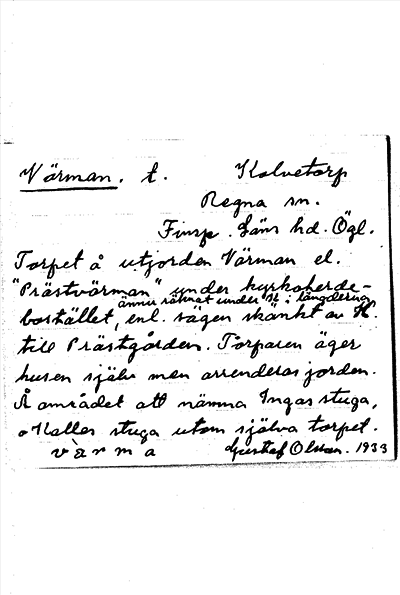 Värman. t. Kalvetorp
Regna sn.
Finsp. Läns hd. Ögl.
Torpet å utjorden Värman el.
"Prästvärman" under kyrkoherde-
ännu räknat under K i längderna
bostället, enl. sägen skänkt av K.
till Prästgården. Torparen äger
husen själv men arrenderar jorden.
Å området att nämna Ingas stuga,
o Kalles stuga utom själva torpet.
värma Gustaf Olsson. 1933